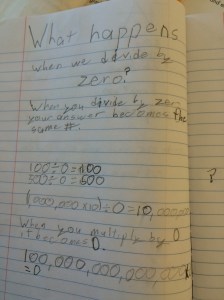 What happens
when we divide by
zero?
When you divide by zero
your answer becomes the
same #.
100÷0=100
500÷0=500
1,000,000,000÷0=10,000,000
When you multiply by 0
it becomes 0.
100,000,000,000,000
=0
?